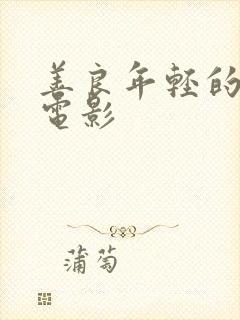 善良年轻的
電影
蒲萄